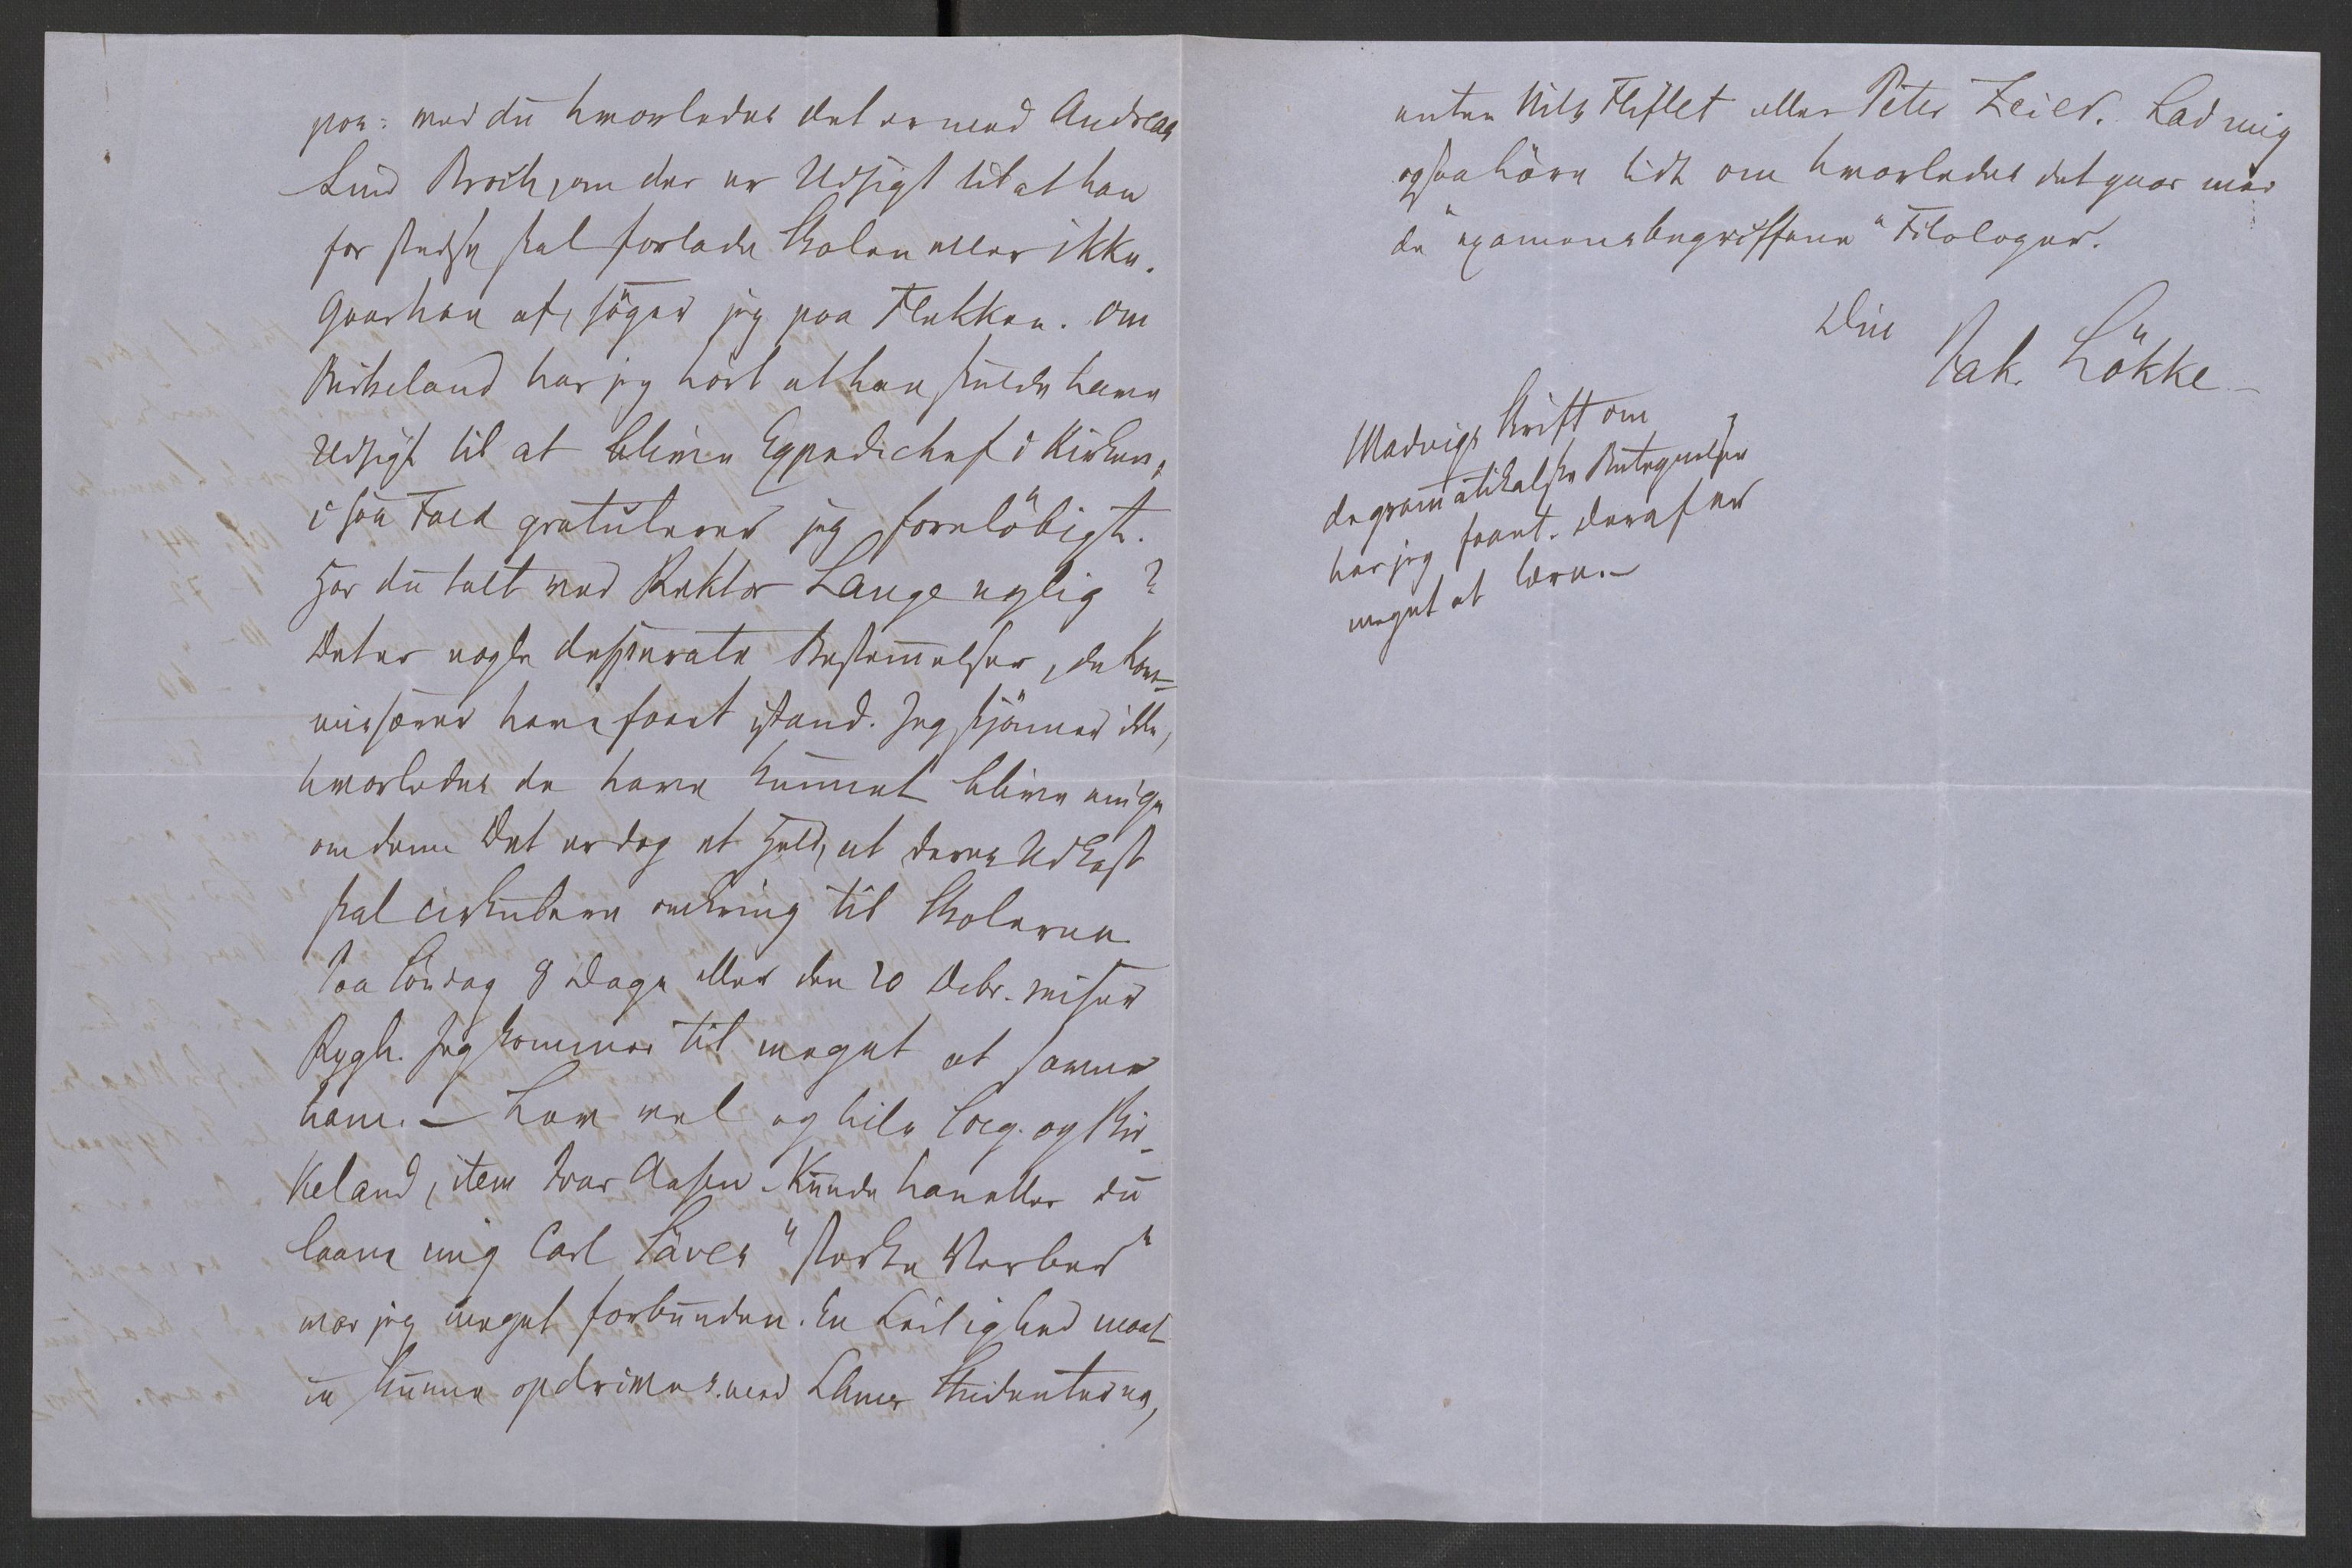 paa: ved du hvorledes det er med Andreas
Lind Broch, om der er Udsigt til at han
for stedse skal forlade Skolen eller ikke.
Gaar han af, söger jeg paa Flekken. Om
Birkeland har jeg hört at han skulde have
Udsigt til at blive Expedichef i Kirken,
i saa Fald gratulerer jeg forelöbigt.
Har du talt med Rektor Lange nylig?
Det er nogle desperate Bestemmelser, de Kom-
misærer have faaet istand. Jeg skjönner ikke,
hvorledes de have kunnet blive enige
om dem Det er dog et Held, at deres Udkast
skal cirkulere omkring til Skolerne.
Paa Söndag 8 Dage eller den 20 Debr. reiser
Rygh. Jeg kommer til meget at savne
ham. – Lev vel og hils og Bir-
keland, item Ivar Aasen. Kunde han eller du
laane mig Carl Säves "starke Verber"
var jeg meget forbunden. En Leilighed maat-
te kunne opdrives med Studenterne,
enten Nils Fliflet eller Peter Zeier. Lad mig
ogsaa höre lidt om hvorledes det gaar med
de "examensbegriffene" Filologer.
Din
Jak. Lökke –
Madvigs Skrift om
de grammatikalske Betegnelser
har jeg faaet. Deraf er
meget at lære. –